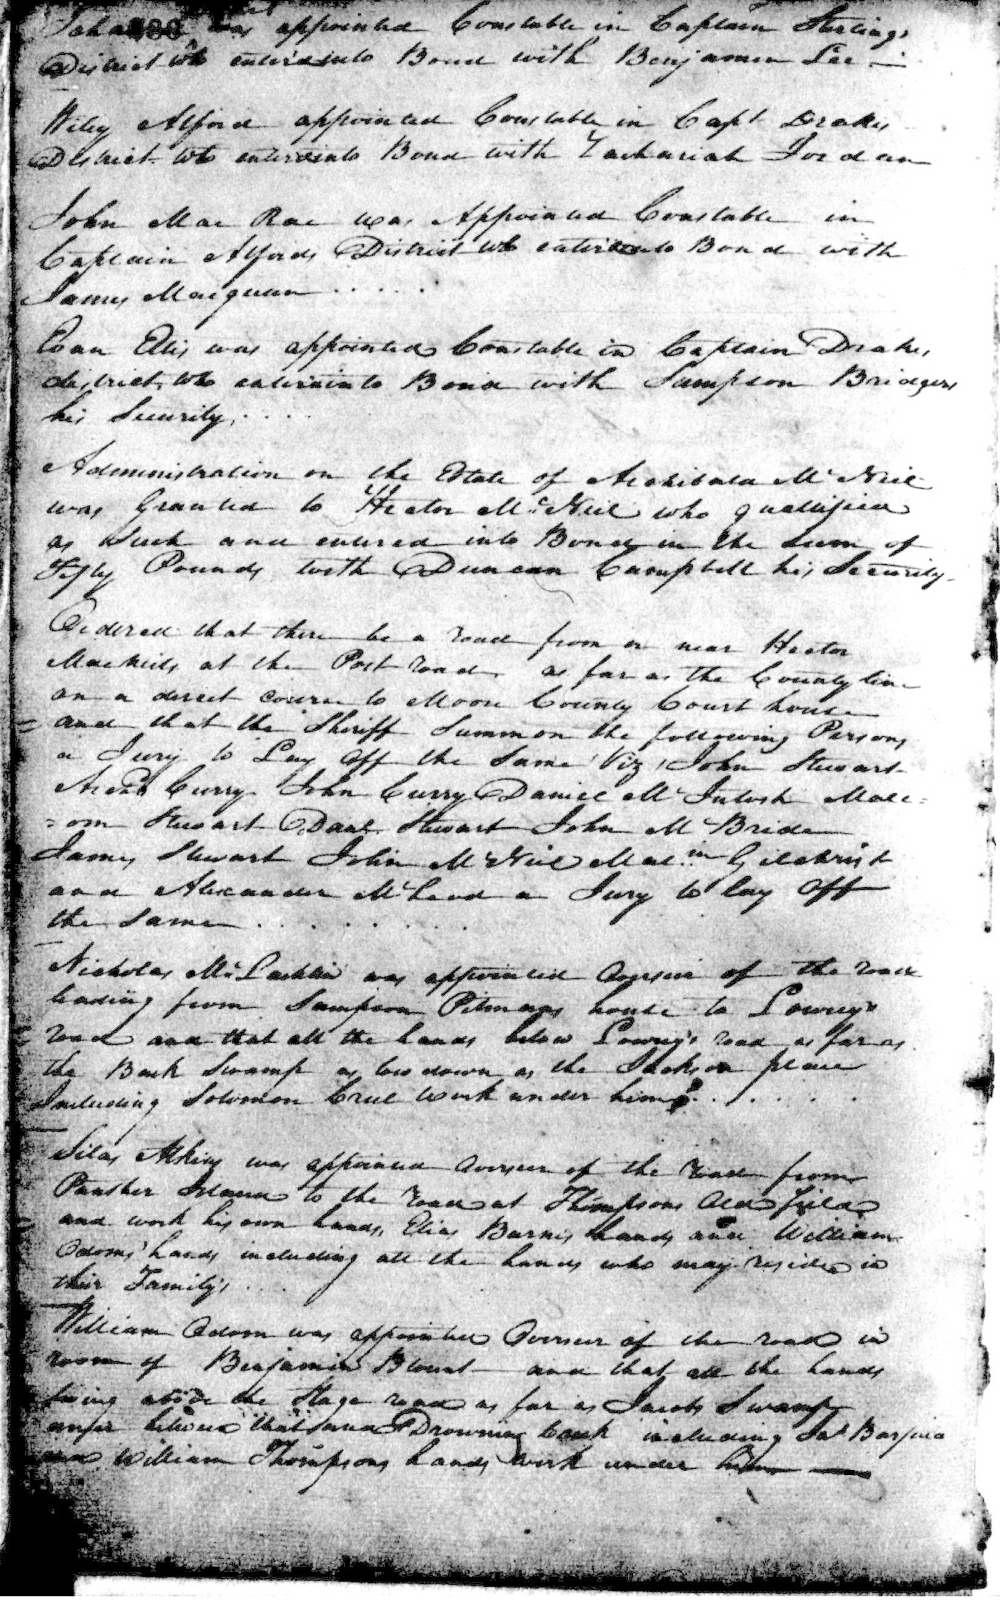 was appointed Constable in Captain Sterlings
District who enterd into Bond with Benjamin Lee
Wiley Alford appointed Constable in Capt Drakes
District who enterd into Bond with Zachariah Jordan
John Mac Rae was Appointed Constable in
Captain Alfords District who enterd into Bond with
James Macqueen . . . . .
Evan Ellis was appointed Constable in Captain Drakes
district who enterd into Bond with Sampson Bridgers
his Security. . . .
Administration on the Estate of Archibald Mc Neil
was Granted to Hector Mc Neil who qualified
as Such and entered into Bond in the Sum of
Fifty Pounds with Duncan Campbell his Security
Ordered that there be a road from or near Hector
Macneils at the Post road as far as the County line
on a direct course to Moore County Court house
and that the Sheriff Summon the following Persons
a Jury to Lay Off the Same Viz John Stewart
Archd Curry John Curry Daniel Mc Intosh Malc=
=om Stewart Danl Stewart John Mc Bride
James Stewart John Mc Neil Malm Gilchrist
and Alexander McLeod a Jury to lay Off
the Same . . . . . . .
Nicholas Mc Lachlin was appointed Overseer of the road
leading from Sampson Pitmans house to Lowry's
road and that all the hands below Lowry's road as far as
the Back Swamp as low down as the Jackson place
Including Solomon Creel work under him . . . . .
Silas Atkins was appointed Overseer of the road from
Panther Island to the road at Thompsons Old field
and work his own hands, Elias Barnes hands and William
Odoms hands including all the hands who may reside in
their Family's . . .
William Odom was appointed Overseer of the road in
room of Benjamin Blount and that all the hands
living above the Stage road as far as Jacobs Swamp
between that and Drowning Creek including Jas Barfield
and William Thompsons hands work under him